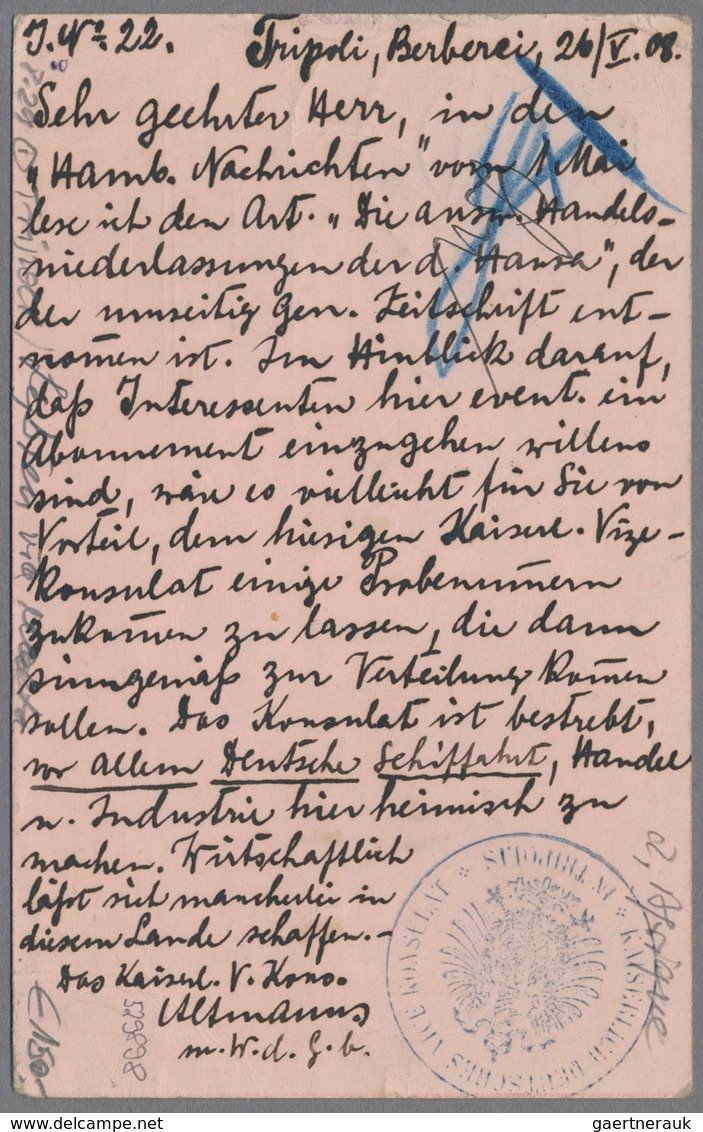 J. No. 22. Tripoli, Berberei, 26/V. 08.
Sehr geehrter Herr, in den
„Hamb. Nachrichten" vom 1 Mai
lese ich den Art. „Die ausw. Handels-
niederlassungen der d. Hansa", der
der umseitig gen. Zeitschrift ent-
nom̄en ist. Im Hinblick darauf,
daß Interessenten hier event. ein
Abonnement einzugehen willens
sind, wäre es vielleicht für Sie von
Vorteil, dem hiesigen Kaiserl. Vize-
Konsulat einige Probenum̄ern
zukom̄en zu lassen, die dann
sinngemäß zur Verteilung kom̄en
sollen. Das Konsulat ist bestrebt,
vor allem Deutsche Schiffahrt, Handel
u. Industrie hier heimisch zu
machen. Wirtschaftlich
läßt sich mancherlei in
diesem Lande schaffen.-
Das Kaiserl. V. Kons.
Altmann
m. W. d. G. b.
KAISERLICH DEUTSCHES VICE KONSULAT * IN TRIPOLIS *
529898
£ 150
gaertnerauk